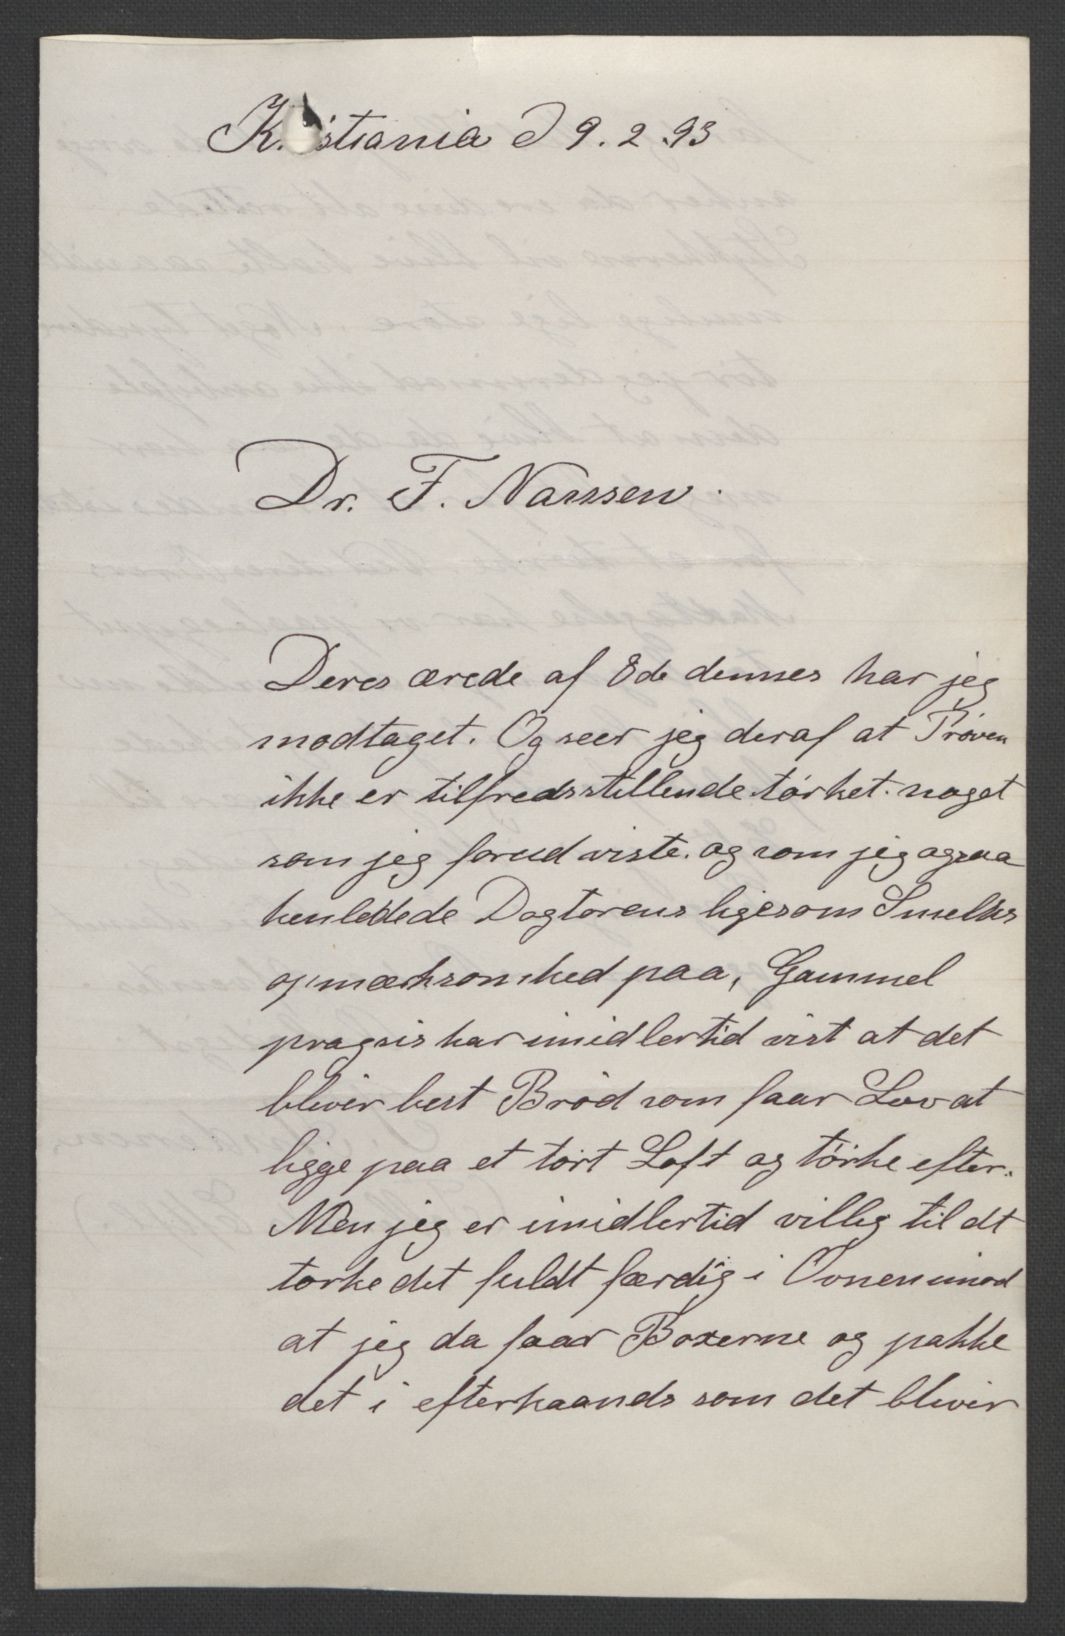 K. istiania d 9. 2. 93
Dr. F. Nanssen.
Deres ærede af 8de dennes har jeg
modtaget. Og seer jeg deraf at Prøven
ikke er tilfredsstillende tørket. noget
som jeg forud viste. og som jeg ogsaa
henledede Dogtorens ligesom
opmærksomhed paa, Gammel
pragsis har imidlertid vist at det
bliver best Brød som faar Lov at
ligge paa et tørt Loft og tørke efter.
Men jeg er imidlertid villig til at
tørke det fuldt færdig i Ovnen imod
at jeg da faar Boxerne og pakke
det i efterhaands som det bliver